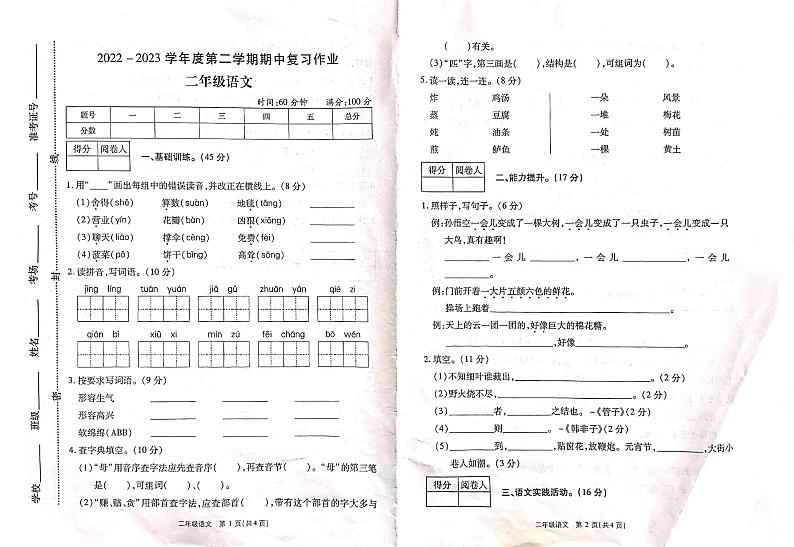 2022-2023学年度第二学期期中复习作业
二年级语文
时间:60分钟 满分:100分
题号 一 二 三 四 五 总分
分数
得分 阅卷人
一、基础训练。(45分)
1.用“____”画出每组中的错误读音,并改正在横线上。(8分)
(1)舍得(shě) 算数(suàn) 地毯(tǎng) ________
(2)营业(yín) 花瓣(bàn) 凶狠(xiōng) ________
(3)聊天(liáo) 撑伞(cēng) 免费(fèi) ________
(4)菠菜(pō) 饼干(bǐng) 高耸(sǒng) ________
2.读拼音,写词语。(10分)
jīng líng tuán yuán jiā gǔ zhuān tóu qié zi
qián bì xiū xi mín zú fēi cháng bō wén
3.按要求写词语。(9分)
形容生气 ________ ________
形容高兴 ________ ________
软绵绵(ABB) ________ ________
4.查字典填空。(10分)
(1)“母”用音序查字法应先查音序( ),再查音节( )。“母”的第三笔
是( ),可组词( )、( )。
(2)“赚、赔、贪”用部首查字法,应查部首( ),带有这个部首的字大多与
二年级语文 第1页(共4页)
学校______ 班级______ 姓名______ 考场______ 考号______ 准考证号______
密 封 线
( )有关。
(3)“匹”字,第三画是( ),结构是( ),可组词为( )。
5.读一读,连一连。(8分)
炸 鸡汤 一朵 风景
蒸 豆腐 一堆 梅花
炖 油条 一处 树苗
煎 鲈鱼 一棵 黄土
得分 阅卷人
二、能力提升。(17分)
1.照样子,写句子。(6分)
例:孙悟空一会儿变成了一棵大树,一会儿变成了一只虫子,一会儿变成了一只
大鸟,真有趣啊!
________一会儿________,一会儿________,一会儿
________。
例:门前开着一大片五颜六色的鲜花。
操场上跑着________________。
例:天上的云一团一团的,好像巨大的棉花糖。
________________,好像________________。
2.填空。(11分)
(1)不知细叶谁裁出,________________。(2分)
(2)野火烧不尽,________________。(2分)
(3)________者,________之结也。-《管子》(2分)
(4)________则________。-《韩非子》(2分)
(5)________到,________,贴窗花,放鞭炮。元宵节,________,大街小
巷人如溜。(3分)
得分 阅卷人
三、语文实践活动。(16分)
二年级语文 第2页(共4页)